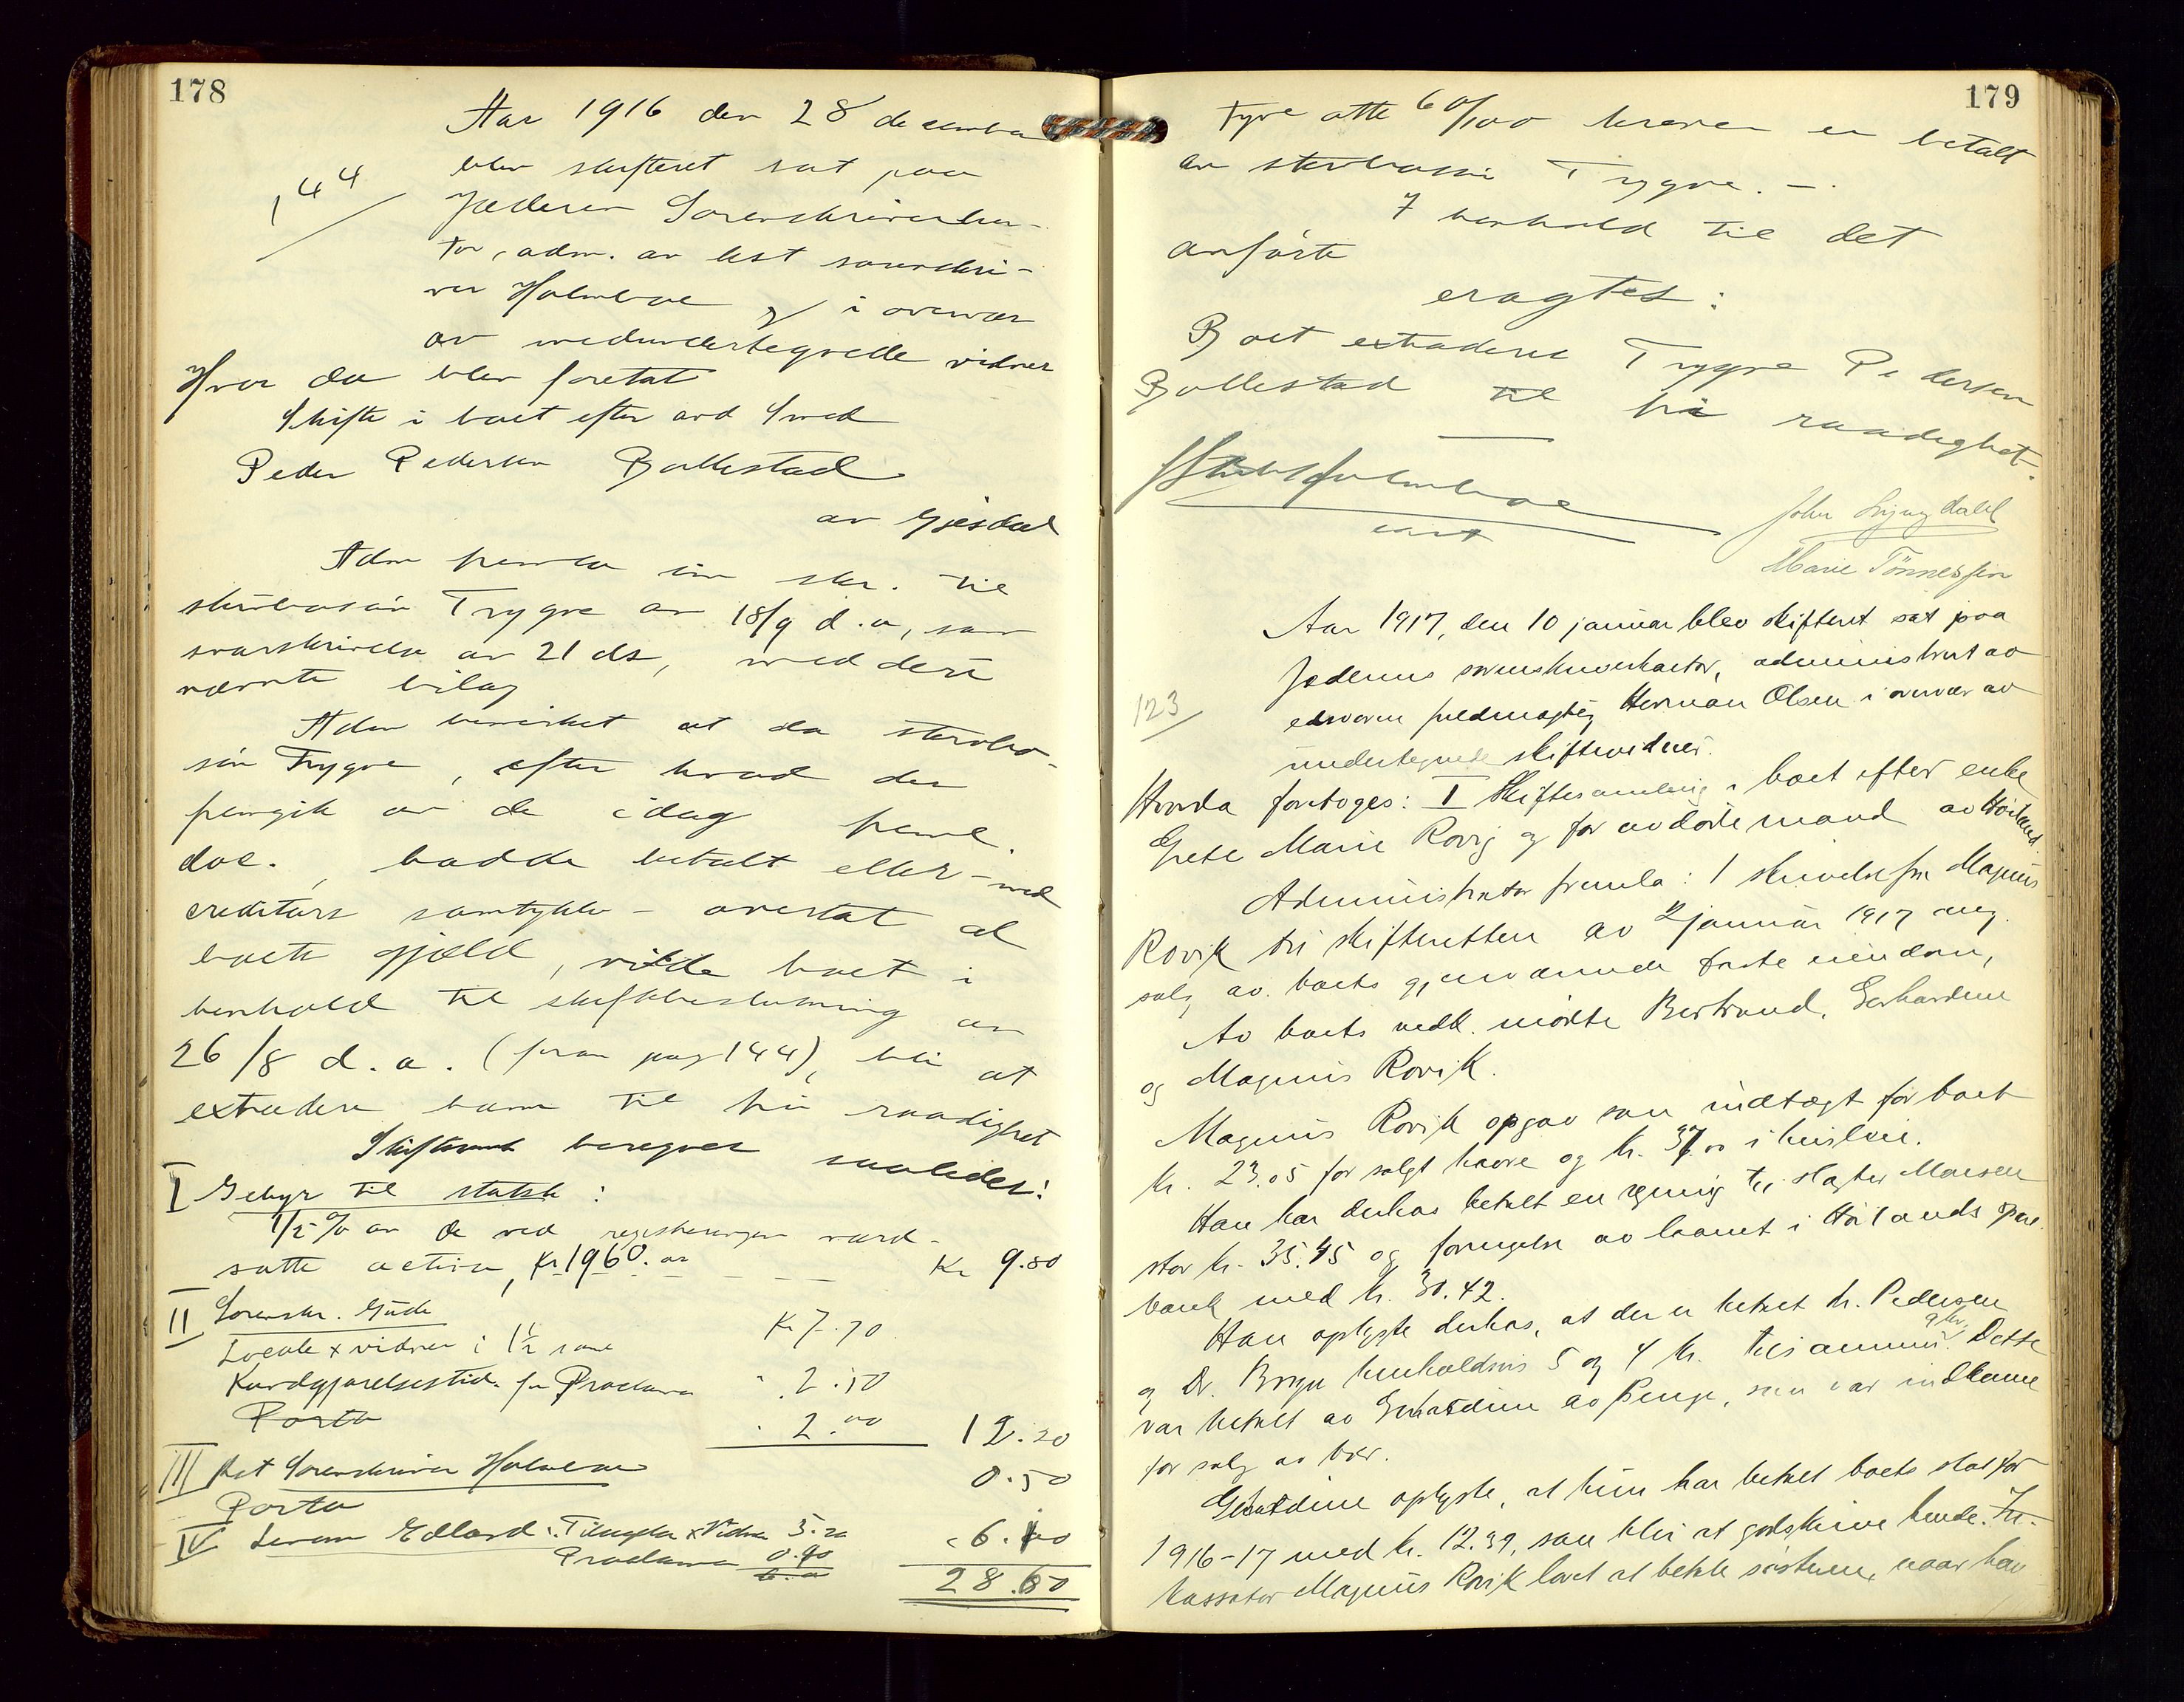 178
Aar 1916 den 28 december
144
blev skifteret sat paa
Jæderen Sorenskriverkon-
tor, adm. av kst sorenskri-
ver Holmboe og i overvær
av medundertegnede vidner
Hvor da blev foretat
Skifte i boet efter avd Smed
Peder Pedersen Bollestad
av Gjesdal
Adm fremla sin skr. til
sterbosøn Trygve av 18/9 d.a, samt
svarskrivelse av 21 ds, med deri
nævnte bilag
Adm bemerket at da sterbo-
søn Trygve, efter hvad der
fremgik av de idag freml.
doc., hadde betalt eller - med
creditors samtykke - overtat al
boets gjæld, vilde boet i
henhold til skiftebeslutning av
26/8 d.a. (foran pag 144), bli at
extradere ham til fri raadighet
Skifteomk beregnes saaledes:
I Gebyr til statsk:
1/2 % av de ved registreringen værd-
satte activa, kr 1960.00 Kr 9.80
II Sorenskr. Gude
Locale x vidner i 1 1/2 time Kr 7.70
Kundgjørelsestid. for Proclama " 2.50
Porto " 2.00 12.20
III Kst Sorenskriver Holmboe
Porto 0.50
IV Lensm Edland: Tilsigelse x Vidner 5.20
Proclama 0.90 " 6.10
28.60
179
tyve otte 60/100 kroner er betalt
av sterbosøn Trygve. -
I henhold til det
anførte
eragtes:
Boet extraderes Trygve Pedersen
Bollestad til fri raadighet.
Holmboe
const
John Lyngdahl
Marie Tönnessen
Aar 1917, den 10 januar blev skifteret sat paa
Jæderens sorenskriverkontor, administrert av
123
edsvoren fuldmægtig Herman Olsen i overvær av
undertegnede skiftevidner.
Hvorda foretoges: I Skiftesamling i boet efter enke
Grete Marie Rovig og før avdøde mand av Høiland.
Administrator fremla: 1 skrivelse fra Magnus
Rovik til skifteretten av 2 januar 1917 ang.
salg av boets gjenværende faste eiendom,
Av boets vedk. mødte Bertrand, Gerhardine
og Magnus Rovik.
Magnus Rovik opgav som indtægt for boet
kr. 23.05 for solgt havre og kr. 37.00 i husleie.
Han har derhos betalt en regning til slagter Monsen
stor kr. 35.45 og fornyelse av laanet i Høilands spare
bank med kr. 30.42.
Han oplyste derhos, at der er betalt hr. Pedersen
og Dr. Borge henholdsvis 5 og 4 kr. tilsammen 9 kr. Dette
var betalt av Gerhardine av penge, som var indkomne
for salg av bær.
Gerhardine oplyste, at hun har betalt boets skat for
1916-17 med kr. 12.39, som blir at godskrive hende. In-
kassator Magnus Rovik lovet at betale søsteren, naar han